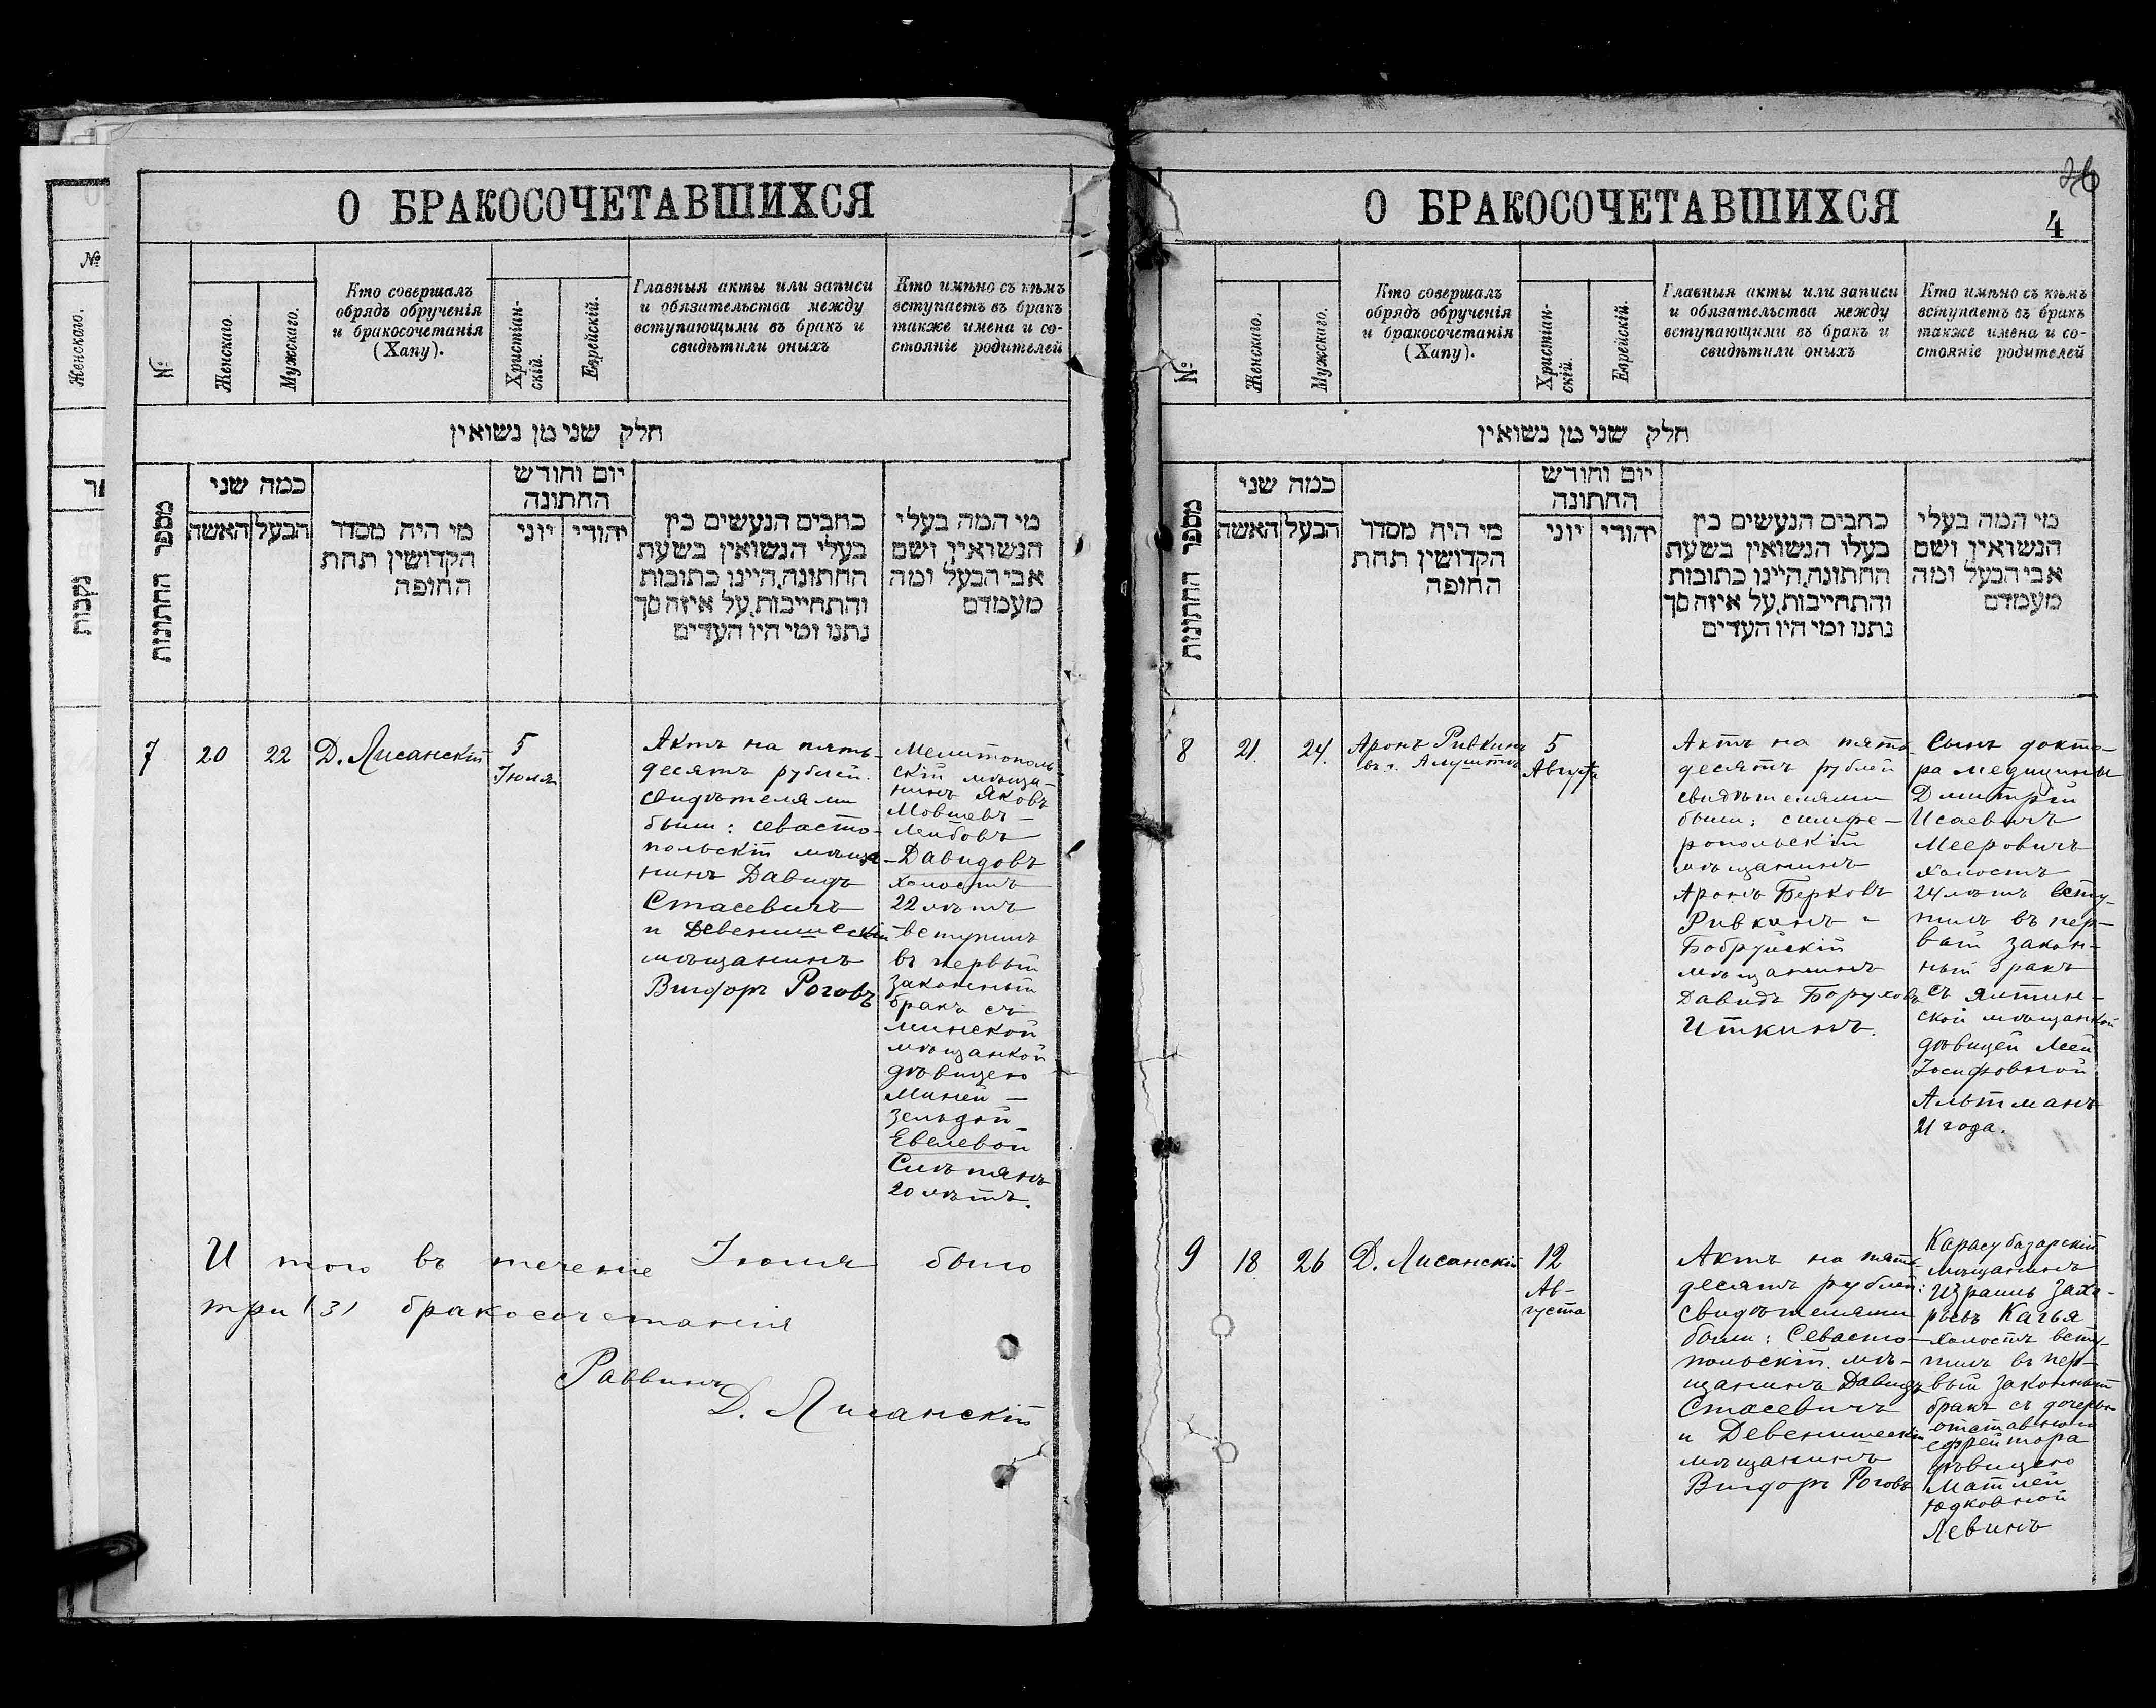 №
Женскаго.
נקבות
О БРАКОСОЧЕТАВШИХСЯ
№
Женскаго.
Мужскаго.
Кто совершалъ
обрядъ обрученія
и бракосочетанія
(Хапу).
Христіан-
скій.
Еврейскій.
Главныя акты или записи
и обязательства между
вступающими въ бракъ и
свидѣтили оныхъ
Кто имѣно съ кѣмъ
вступаетъ въ бракъ
также имена и со-
стояніе родителей
חלק שני מן נשואין
מספר החתונות
כמה שני
האשה
הבעל
מי היה מסדר
הקדושין תחת
החופה
יום וחודש
החתונה
יוני
יהודי
כתבים הנעשים בין
בעלי הנשואין בשעת
החתונה,היינו כתובות
והתחייבות,על איזה סך
נתנו ומי היו העדים
מי המה בעלי
הנשואין ושם
אבי הבעל ומה
מעמדם
7
20
22
Д. Лисанскій
5
Іюля
Актъ на пять-
десятъ рублей.
свидѣтелями
были: севасто-
польскій мѣща-
нинъ Давидъ
Стасевичъ
и Девенишескій
мѣщанинъ
Вигдоръ Роговъ
Мелитополь-
скій мѣща-
нинъ Яковъ
Мовшевъ-
Лейбовъ
Давидовъ
холостъ
22 лѣтъ
вступилъ
въ первый
законный
бракъ съ
минской
мѣщанкой
дѣвицею
Миней —
Зельдой-
Евелевой
Смѣтянъ
20 лѣтъ.
И того въ теченіе Іюля было
три (3) бракосочетанія
Раввинъ
Д. Лисанскій
26
О БРАКОСОЧЕТАВШИХСЯ
4
№
Женскаго.
Мужскаго.
Кто совершалъ
обрядъ обрученія
и бракосочетанія
(Хапу).
Христіан-
скій.
Еврейскій.
Главныя акты или записи
и обязательства между
вступающими въ бракъ и
свидѣтили оныхъ
Кто имѣно съ кѣмъ
вступаетъ въ бракъ
также имена и со-
стояніе родителей
חלק שני מן נשואין
מספר החתונות
כמה שני
האשה
הבעל
מי היה מסדר
הקדושין תחת
החופה
יום וחודש
החתונה
יוני
יהודי
כתבים הנעשים בין
בעלו הנשואין בשעת
החתונה,היינו כתובות
והתחייבות,על איזה סך
נתנו ומי היו העדים
מי המה בעלי
הנשואין ושם
אבי הבעל ומה
מעמדם
8
21.
24.
Аронъ Ривкинъ
въ г. Алуштѣ
5
Августа
Актъ на пять-
десятъ рублей
свидѣтелями
были: симфе-
ропольскій
мѣщанинъ
Аронъ Берковъ
Ривкинъ и
Бобруйскій
мѣщанинъ
Давидъ Боруховъ
Иткинъ.
Сынъ докто-
ра медицины
Дмитрій
Исаевичъ
Мееровичъ
холостъ
24 лѣтъ всту-
пилъ въ пер-
вый закон-
ный бракъ
съ Ялтин-
ской мѣщанкой
дѣвицей Леей
Іосифовной
Альтманъ
21 года.
9
18
26
Д. Лисанскій
12
Ав-
густа
Актъ на пять-
десятъ рублей:
свидѣтелями
были: Севасто-
польскій мѣ-
щанинъ Давидъ
Стасевичъ
и Девенишескій
мѣщанинъ
Вигдоръ Роговъ
Карасубазарскій
мѣщанинъ
Израиль Заха-
рьевъ Качья
холостъ всту-
пилъ въ пер-
вый законный
бракъ съ дочерью
отставного
ефрейтора
дѣвицею
Матлей
Юдковной
Левинъ